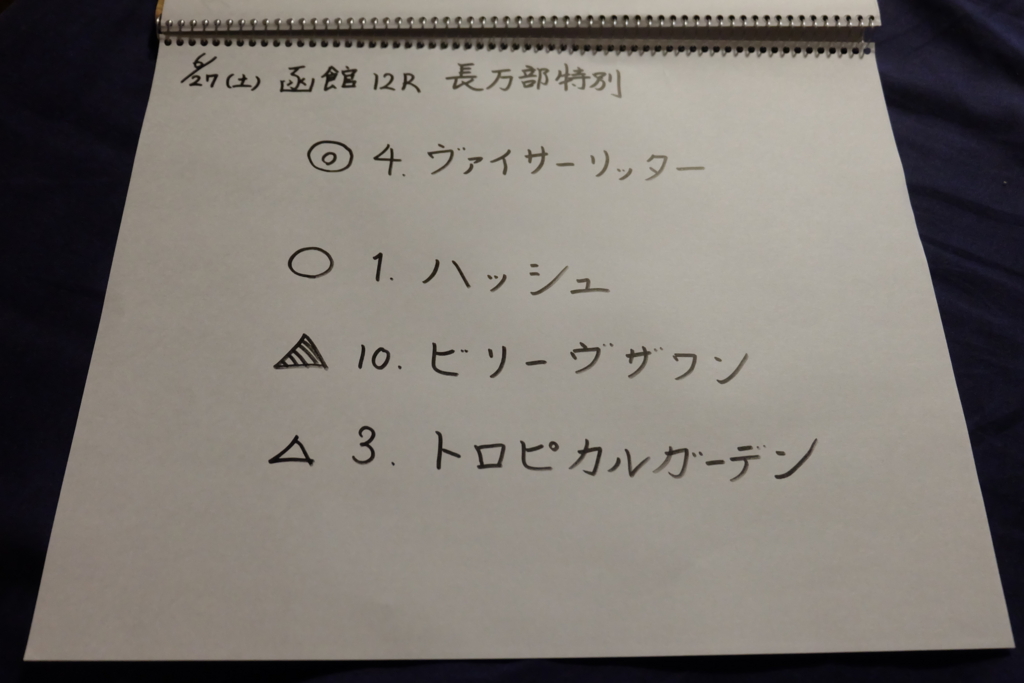 6/27(土) 函館 12R 長万部特別
◎ 4. ヴァイサーリッター
○ 1. ハッシュ
▲ 10. ビリーヴザワン
△ 3. トロピカルガーデン